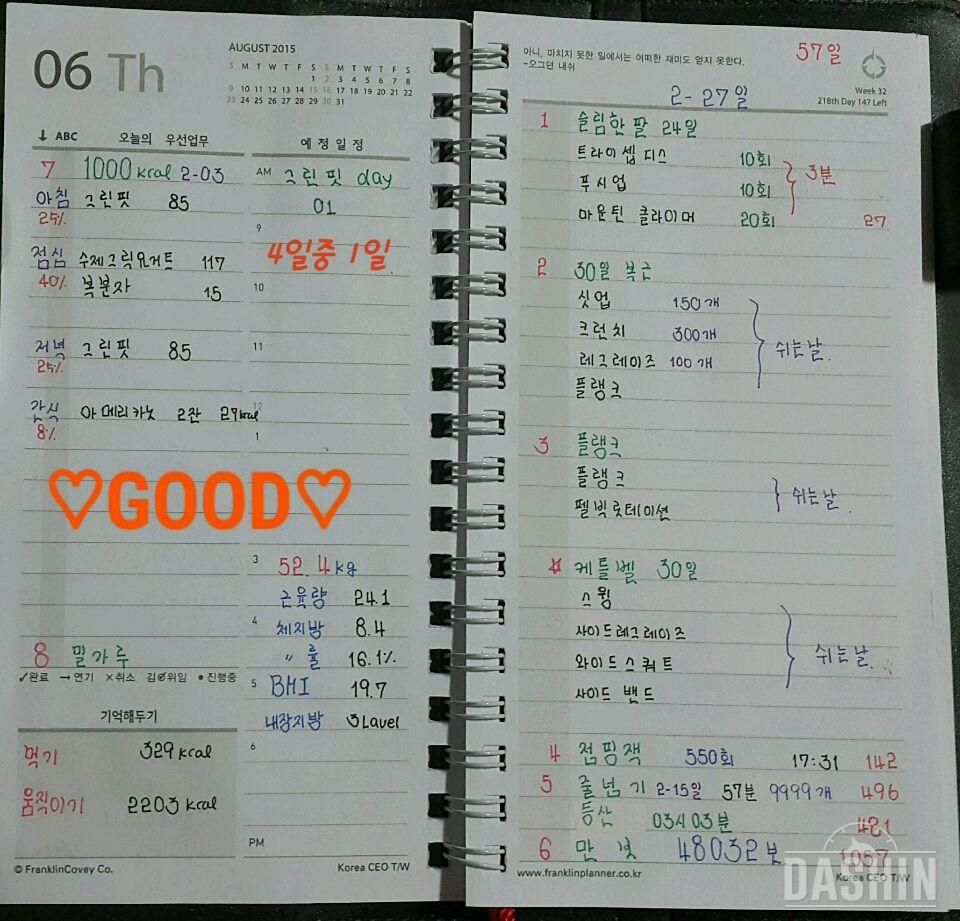 06 Th
AUGUST 2015
S M T W T F S S M T W T F S
1 2 3 4 5 6 7 8
9 10 11 12 13 14 15 16 17 18 19 20 21 22
23 24 25 26 27 28 29 30 31
↓ ABC 오늘의 우선업무
7 1000 kcal 2-03
아침 그린핏 85
25%
점심 수제그릭요거트 117
40% 복분자 15
저녁 그린핏 85
25%
간식 아메리카노 2잔 27kcal
8%
♡GOOD♡
8 밀가루
✓완료 →연기 ×취소 위임 •진행중
기억해두기
먹기 329 kcal
움직이기 2203 kcal
© FranklinCovey Co.
예정일정
AM 그린핏 day
01
9
4일중 1일
10
11
12
1
3 52.4kg
근육량 24.1
4 체지방 8.4
〃 률 16.1%
5 BMI 19.7
내장지방 3Lavel
6
PM
Korea CEO T/W
아니, 마치지 못한 일에서는 어떠한 재미도 얻지 못한다.
-오그던 내쉬
57일
Week 32
218th Day 147 Left
2-27일
1 슬림한 팔 24일
트라이셉 디스 10회
푸시업 10회
3분
마운틴 클라이머 20회 27
2 30일 복근
싯업 150개
크런치 300개
쉬는날.
레그레이즈 100개
플랭크
3 플랭크
플랭크
쉬는날.
펠빅로테이션
☆ 케틀벨 30일
스윙
사이드레그레이즈
쉬는날.
와이드스쿼트
사이드 밴드
4 점핑잭 550회 17:31 142
5 줄넘기 2-15일 57분 9999개 496
등산 03시03분 421
6 만보 48032보 1057
www.franklinplanner.co.kr
Korea CEO T/W
DASHIN